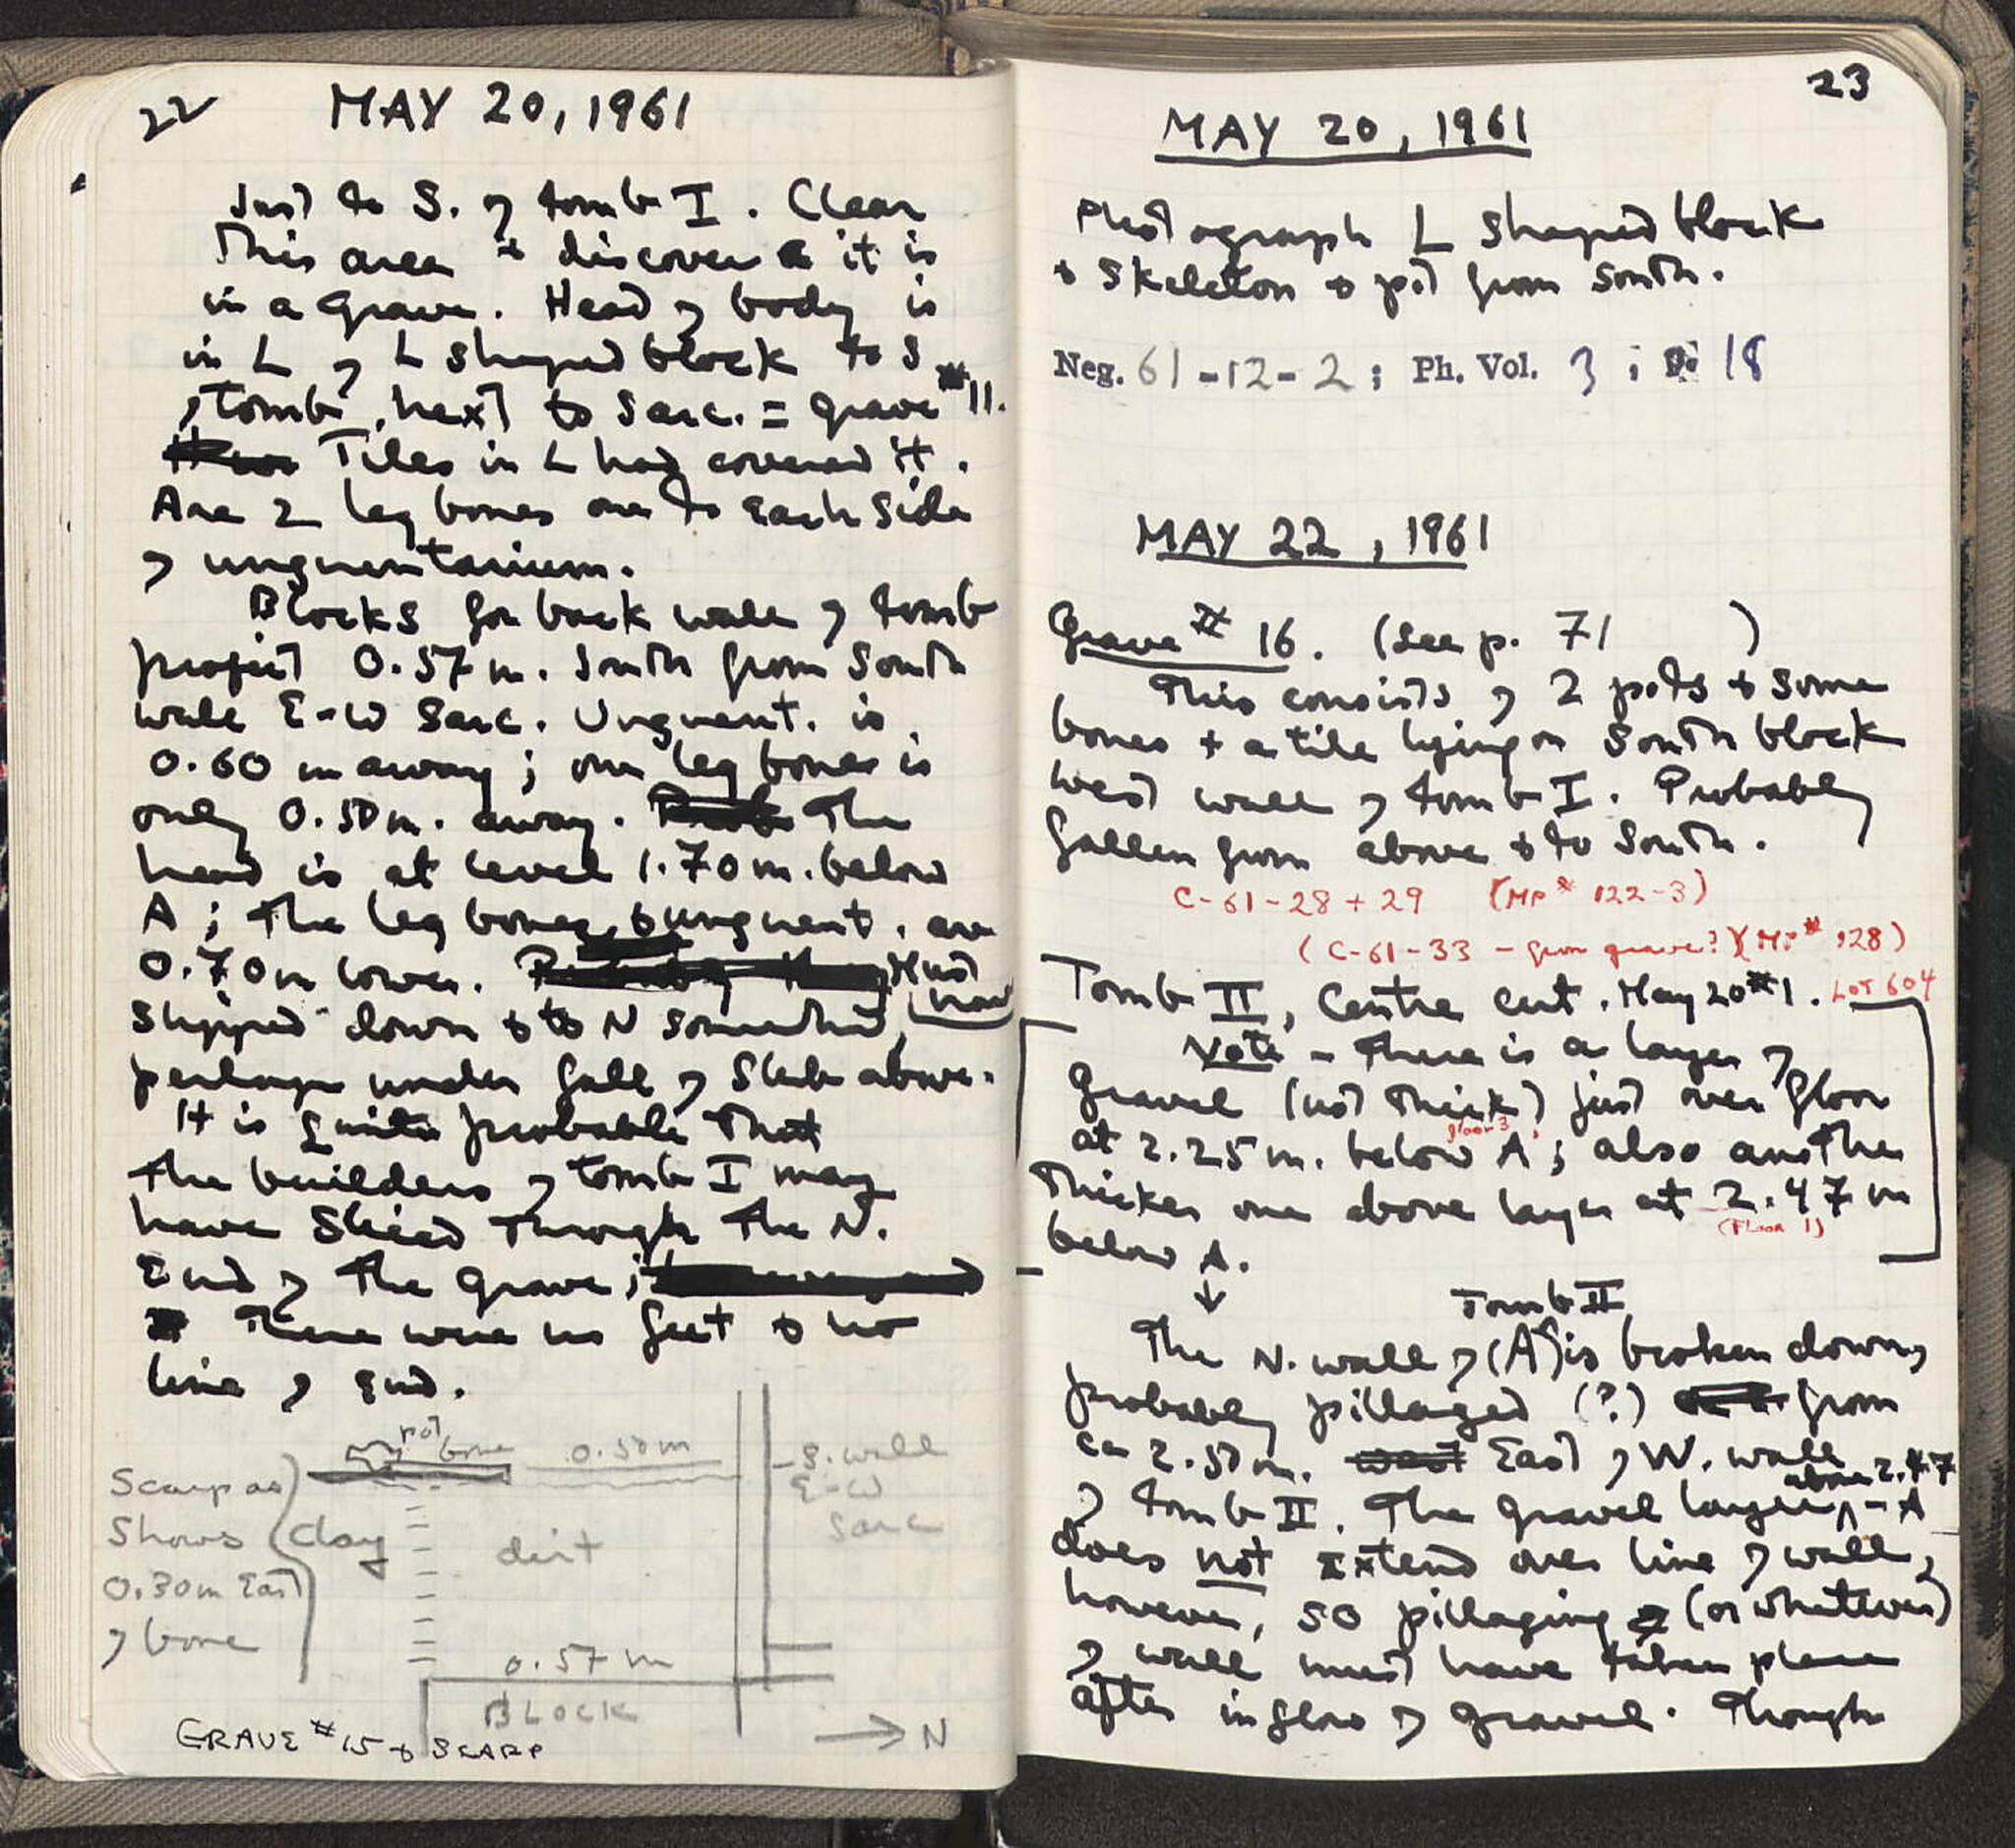 22
MAY 20, 1961
Just to S. of tomb I. Clear
this area + discover it is
in a grave. Head of body is
in L of L shaped block to S
of tomb, next to Sarc. = grave #11.
Tiles in L had covered it.
Are 2 leg bones one to each side
of unguentarium.
Blocks for back wall of tomb
project 0.57 m. South from South
wall E-W Sarc. Unguent. is
0.60 m away; one leg bones is
only 0.50 m. away. The
head is at level 1.70 m. below
A; the leg bones & unguent. are
0.70 m lower. Must have
slipped down & to N somewhat,
perhaps under fall of Slab above.
It is quite probable that
the builders of tomb I may
have sliced through the N.
End of the grave;
There were no feet & no
line of end.
pot bone 0.50 m
S. wall
E-W
Sarc
Scarp as
Shows
0.30 m East
of bone
clay
dirt
0.57 m
BLOCK
N
GRAVE #15 & SCARP
23
MAY 20, 1961
Photograph L shaped block
& Skeleton & pot from South.
Neg. 61-12-2; Ph. Vol. 3; 18
MAY 22, 1961
Grave # 16. (See p. 71 )
This consists of 2 pots & some
bones + a tile lying on South block
west wall of tomb I. Probably
fallen from above & to South.
C-61-28 + 29 (MP# 122-3)
(C-61-33 - from grave?)(MP# 128)
Tomb II, Centre cut. May 20 #1. LOT 604
Note - There is a layer of
gravel (not thick) just over floor
at 2.25 m. below A; also another
floor 3
thicker one above layer at 2.47 m
(Floor 1)
below A.
Tomb II
The N. wall of (A) is broken down,
probably pillaged (?) from
ca 2.50 m. East of W. wall
of tomb II. The gravel layer above 2.47 - A
does not extend over line of wall,
however, so pillaging (or whatever)
of wall must have taken place
after inflow of gravel. Though